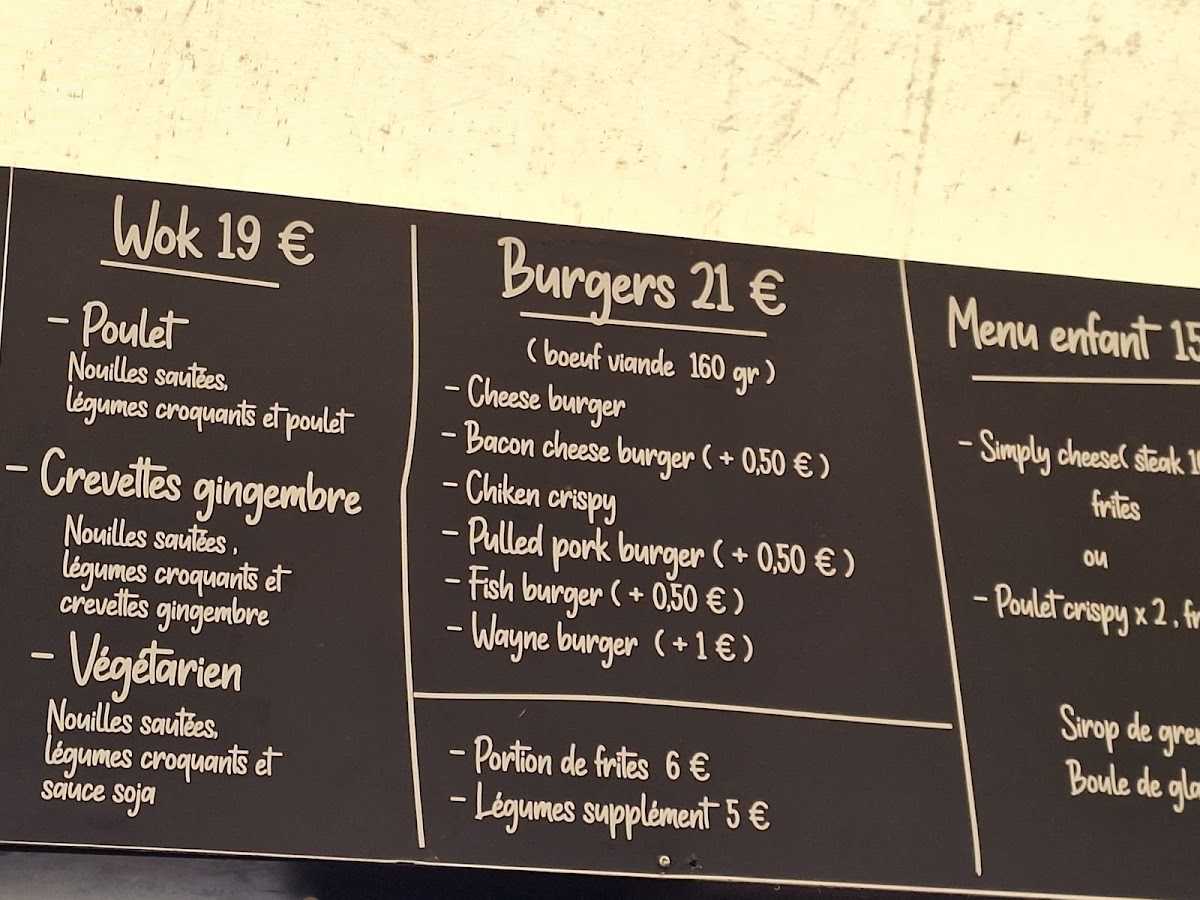 Wok 19 €
- Poulet
Nouilles sautées,
légumes croquants et poulet
- Crevettes gingembre
Nouilles sautées,
légumes croquants et
crevettes gingembre
- Végétarien
Nouilles sautées,
légumes croquants et
sauce soja
Burgers 21 €
( boeuf viande 160 gr )
- Cheese burger
- Bacon cheese burger ( + 0,50 € )
- Chiken crispy
- Pulled pork burger ( + 0,50 € )
- Fish burger ( + 0,50 € )
- Wayne burger ( + 1 € )
- Portion de frites 6 €
- Légumes supplément 5 €
Menu enfant 15
- Simply cheese( steak
frites
ou
- Poulet crispy x 2, fr
Sirop de gre
Boule de gla